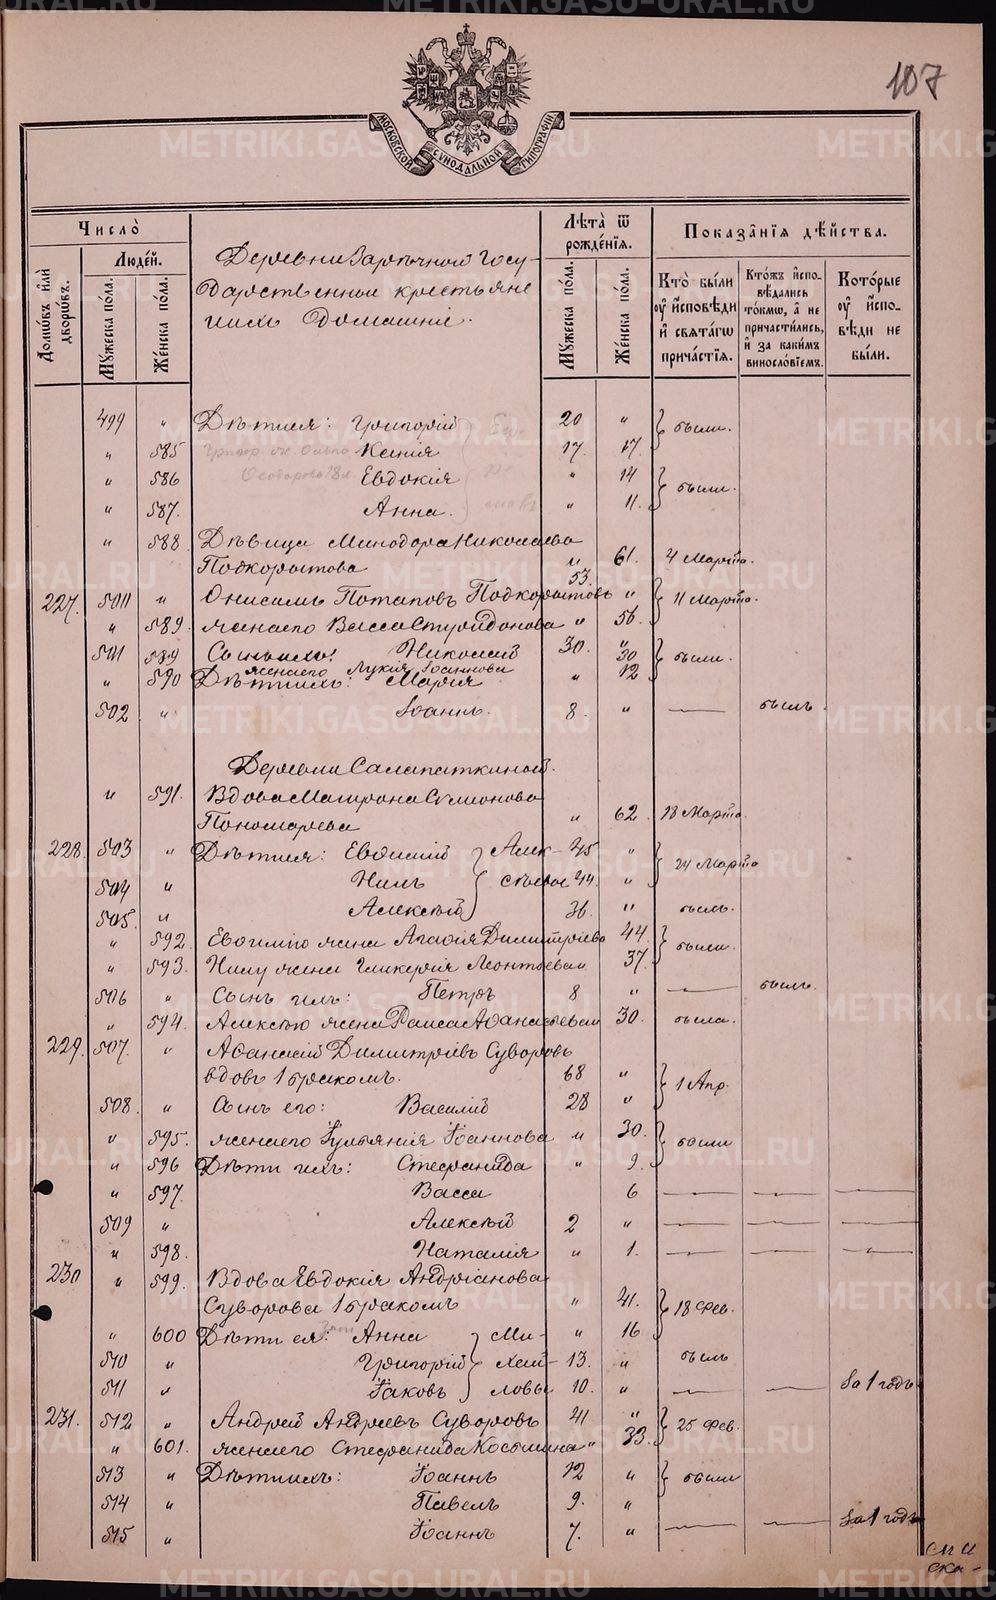 107
МОСКОВСКОЙ СѴНОДАЛЬНОЙ ТИПОГРАФІИ
Число̀
Домѡ́въ и҆лѝ дворѡ́въ.
Люде́й.
Мꙋ́жеска по́ла.
Же́нска по́ла.
Деревни Заречной Госу-
дарственные крестьяне
ихъ Домашніе.
Лѣта̀ ѿ рожде́нїѧ.
Мꙋ́жеска по́ла.
Же́нска по́ла.
Показа̑нїѧ дѣ́йства.
Кто̀ бы́ли оу҆ и҆́сповѣди и҆ свѧта́гѡ прича́стїѧ.
Кто́жъ и҆спо- вѣ́дались то́кмѡ, а҆ не причасти́лись, и҆ за каки́мъ виносло́вїемъ.
Кото́рые оу҆ и҆́спо- вѣди не бы́ли.
499 " Дѣти ея: Григорій 20 " были.
" 585 Ксенія 17. 17.
" 586 Евдокія " 14 были.
" 587. Анна. " 11.
" 588 Дѣвица Минодора Николаева
Подкорытова " 61. 4 Марта.
227. 500 " Онисимъ Потаповъ Подкорытовъ 53. " 11 Марта.
" 589. жена его Васса Спиридонова " 56.
501 589 Сынъ ихъ: Николай 30. " были.
жена его Лукія Іоаннова 30
" 590 Дѣти ихъ: Марія " 12
502 " Іоаннъ. 8. " — былъ.
Деревни Салапаткиной.
" 591. Вдова Матрона Симонова
Пономарева " 62. 18 Марта.
228. 503 " Дѣти ея: Евфимій Алек- 45 " 24 Марта
504 " Нилъ сѣевы 44. "
505. " Алексѣй 36. " былъ.
" 592. Евфимію жена Агафія Димитріева 44. были.
" 593. Нилу жена Гликерія Леонтьева 37.
506 " Сынъ ихъ: Петръ 8 " — былъ.
" 594. Алексѣю жена Раиса Афанасьева 30. была.
229. 507. " Афанасій Димитріевъ Суворовъ
вдовъ 1 бракомъ. 68 " 1 Апр.
508. " Сынъ его: Василій 28 "
" 595. жена его Іуліянія Іоаннова " 30. были
" 596 Дѣти ихъ: Стефанида " 9.
" 597. Васса 6 — — —
509 " Алексѣй 2 " — — —
" 598. Наталія " 1. — — —
230 " 599. Вдова Евдокія Андріанова
Суворова 1 бракомъ " 41. 18 Фев.
" 600 Дѣти ея: Анна Ми- " 16
510 " Григорій хай- 13. " былъ
511 " Іаковъ ловы 10. " — — За 1 годъ
231. 512 " Андрей Андреевъ Суворовъ 41 " 25 Фев.
" 601. жена его Стефанида Косьмина " 33.
513 " Дѣти ихъ: Іоаннъ 12 " были
514 " Павелъ 9. "
515 " Іоаннъ 7. " — — За 1 годъ
METRIKI.GASO-URAL.RU